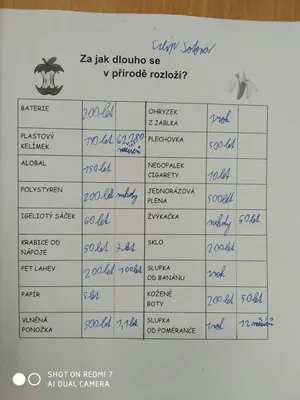 Filip
Za jak dlouho se
v přírodě rozloží?
BATERIE 200 let OHRYZEK Z JABLKA 1 rok
PLASTOVÝ KELÍMEK 110 let PLECHOVKA 500 let
ALOBAL 150 let NEDOPALEK CIGARETY 10 let
POLYSTYREN 200 let nikdy JEDNORÁZOVÁ PLENA 500 let
IGELITOVÝ SÁČEK 60 let ŽVÝKAČKA nikdy 50 let
KRABICE OD NÁPOJE 50 let 7 let SKLO 200 let
PET LAHEV 200 let 100 let SLUPKA OD BANÁNU 1 rok
PAPÍR 5 let KOŽENÉ BOTY 200 let 50 let
VLNĚNÁ PONOŽKA SLUPKA OD POMERANČE 1 rok 12 měsíců
SHOT ON REDMI 7
AI DUAL CAMERA